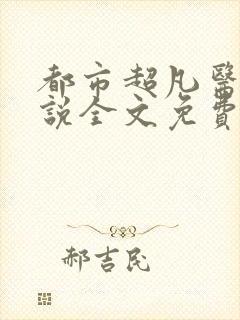 都市超凡醫
說全文免費
郝吉民